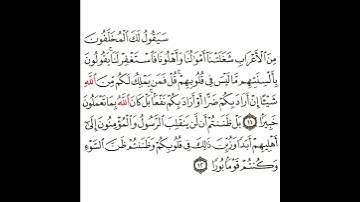 سَيَقُولُ لَكَ ٱلْمُخَلَّفُونَ
مِنَ ٱلْأَعْرَابِ شَغَلَتْنَآ أَمْوَٰلُنَا وَأَهْلُونَا فَٱسْتَغْفِرْ لَنَا ۚ يَقُولُونَ
بِأَلْسِنَتِهِم مَّا لَيْسَ فِى قُلُوبِهِمْ ۚ قُلْ فَمَن يَمْلِكُ لَكُم مِّنَ ٱللَّهِ
شَيْـًٔا إِنْ أَرَادَ بِكُمْ ضَرًّا أَوْ أَرَادَ بِكُمْ نَفْعًۢا ۚ بَلْ كَانَ ٱللَّهُ بِمَا تَعْمَلُونَ
خَبِيرًۢا ١١ بَلْ ظَنَنتُمْ أَن لَّن يَنقَلِبَ ٱلرَّسُولُ وَٱلْمُؤْمِنُونَ إِلَىٰٓ
أَهْلِيهِمْ أَبَدًا وَزُيِّنَ ذَٰلِكَ فِى قُلُوبِكُمْ وَظَنَنتُمْ ظَنَّ ٱلسَّوْءِ
وَكُنتُمْ قَوْمًۢا بُورًا ١٢